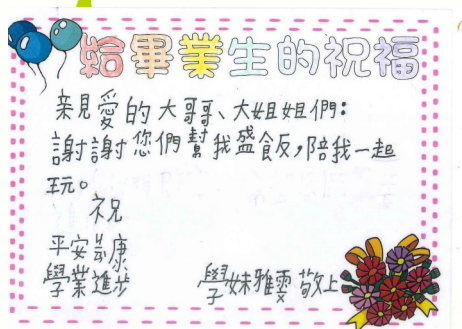 給畢業生的祝福
親愛的大哥哥、大姐姐們：
謝謝您們幫我盛飯，陪我一起
玩。
祝
平安健康
學業進步
學妹雅雯敬上